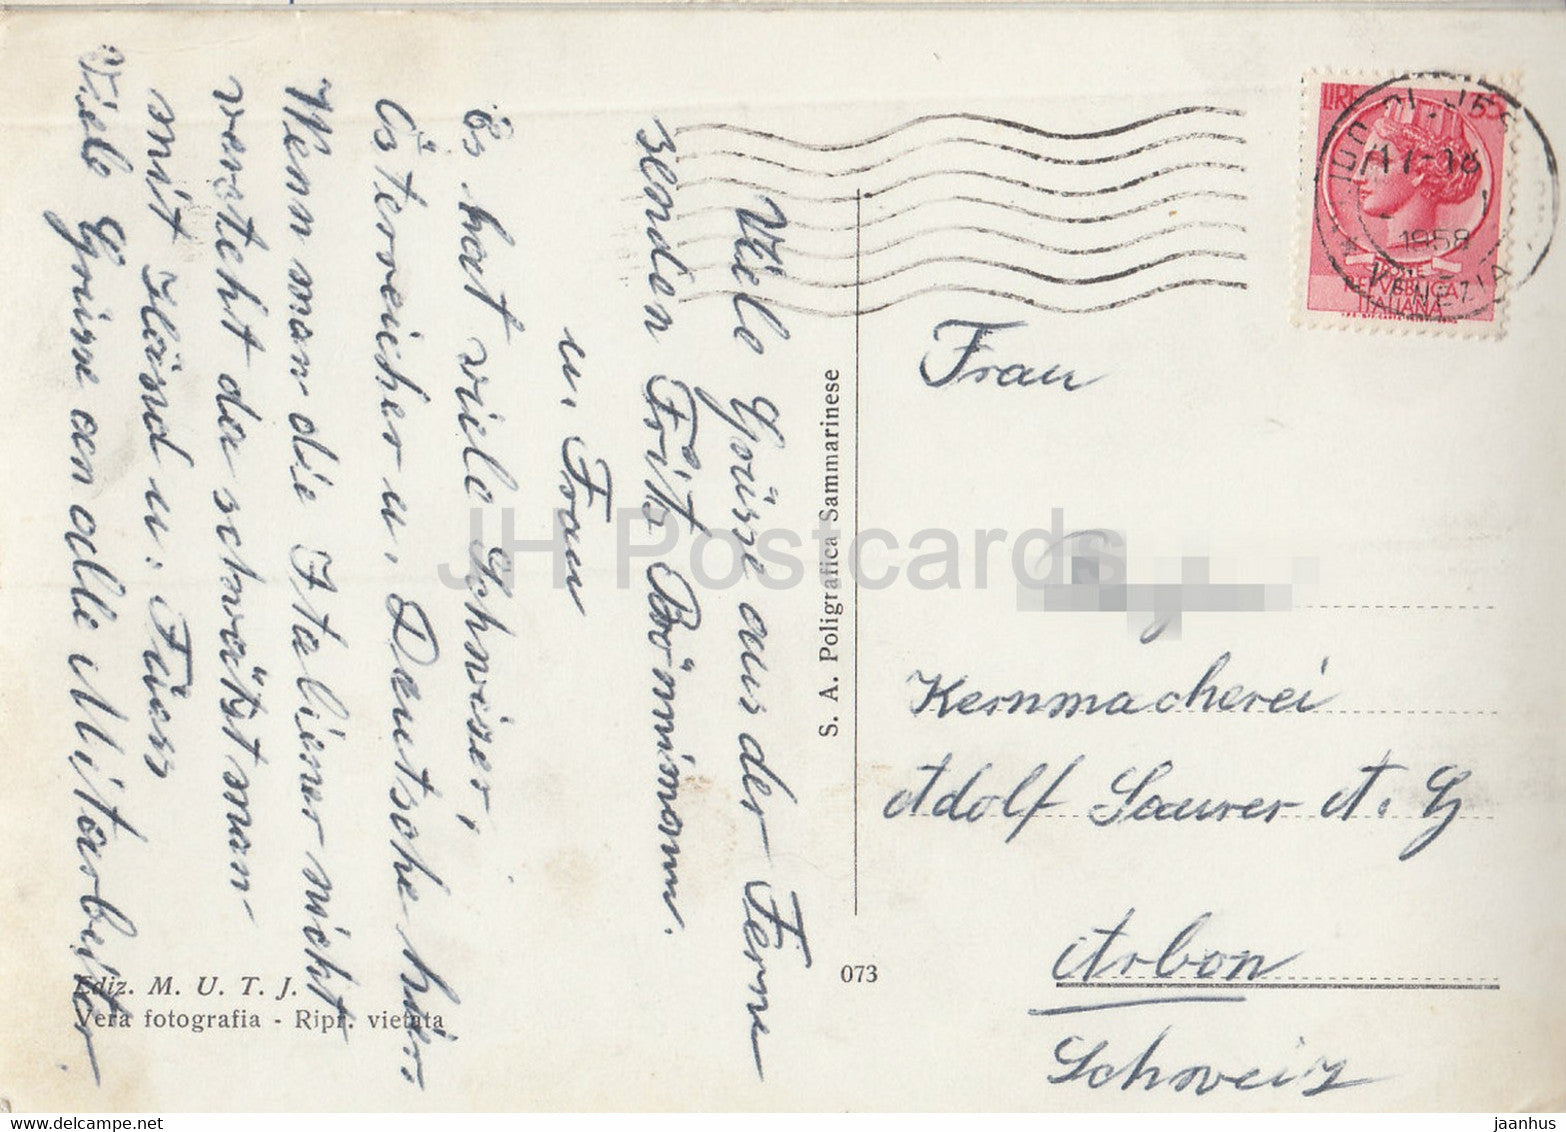 Viele Grüsse aus der Ferne
senden Fritz Bönnimann.
u. Frau
Es hat viele Schweiser,
Österreicher u. Deutsche hier
Wenn man die Italiener nicht
versteht da schwätzt man
mit Händ u. Füess
Viele Grüsse an alle Mitarbeiter
Ediz. M. U. T. J.
Vera fotografia - Ripr. vietata
S. A. Poligrafica Sammarinese
073
LIRE
17-18
1958
VENEZIA
REPVBBLICA
ITALIANA
Frau
Kernmacherei
Adolf Saurer A. G
Arbon
Schweiz
JH Postcards
www.delcampe.net
jaanhus